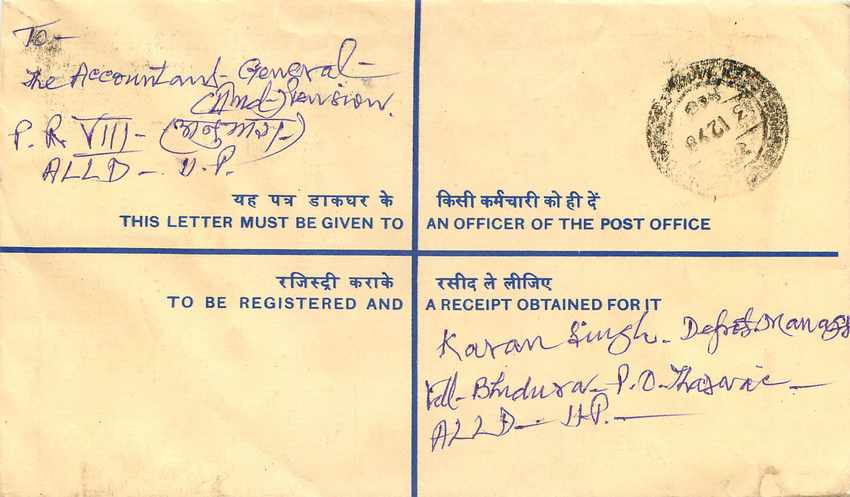 To-
The Accountant- General-
(IInd-) Pension.
P. R. VIII- (अनुभाग-)
ALLD- U.P.
यह पत्र डाकघर के किसी कर्मचारी को ही दें
THIS LETTER MUST BE GIVEN TO AN OFFICER OF THE POST OFFICE
रजिस्ट्री कराके रसीद ले लीजिए
TO BE REGISTERED AND A RECEIPT OBTAINED FOR IT
Karan Singh-
Vill- Bhidura- P.O.
ALLD- U.P.-